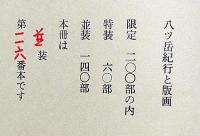 八ツ岳紀行と版画
限定 二〇〇部の内
特装 六〇部
並装 一四〇部
本冊は
並装
第一二六番本です